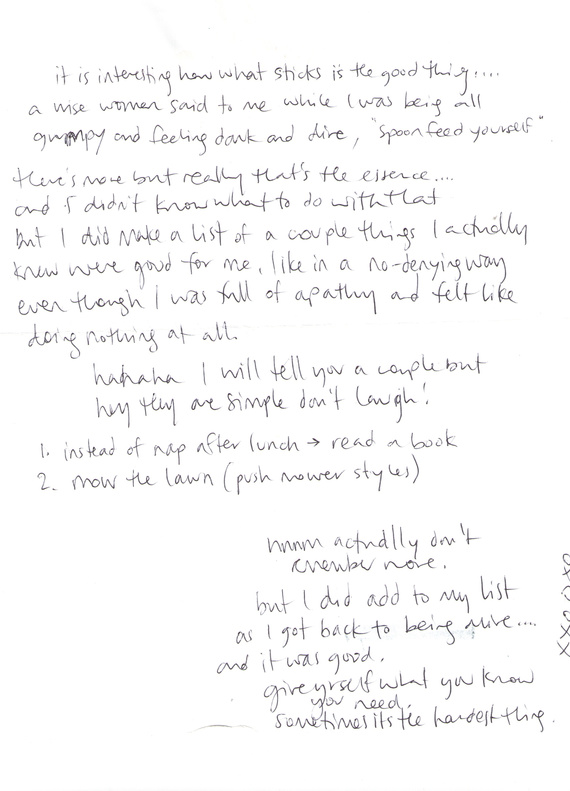 it is interesting how what sticks is the good thing....
a wise women said to me while I was being all
grumpy and feeling dark and dire, "spoon feed yourself"
there's more but really that's the essence....
and I didn't know what to do with that
but I did make a list of a couple things I actually
knew were good for me, like in a no-denying way
even though I was full of apathy and felt like
doing nothing at all.
hahaha I will tell you a couple but
hey they are simple don't laugh!
1. instead of nap after lunch → read a book
2. mow the lawn (push mower styles)
hmmm actually don't
remember more.
but I did add to my list
as I got back to being alive....
and it was good.
give yrself what you know
you need.
sometimes its the hardest thing.